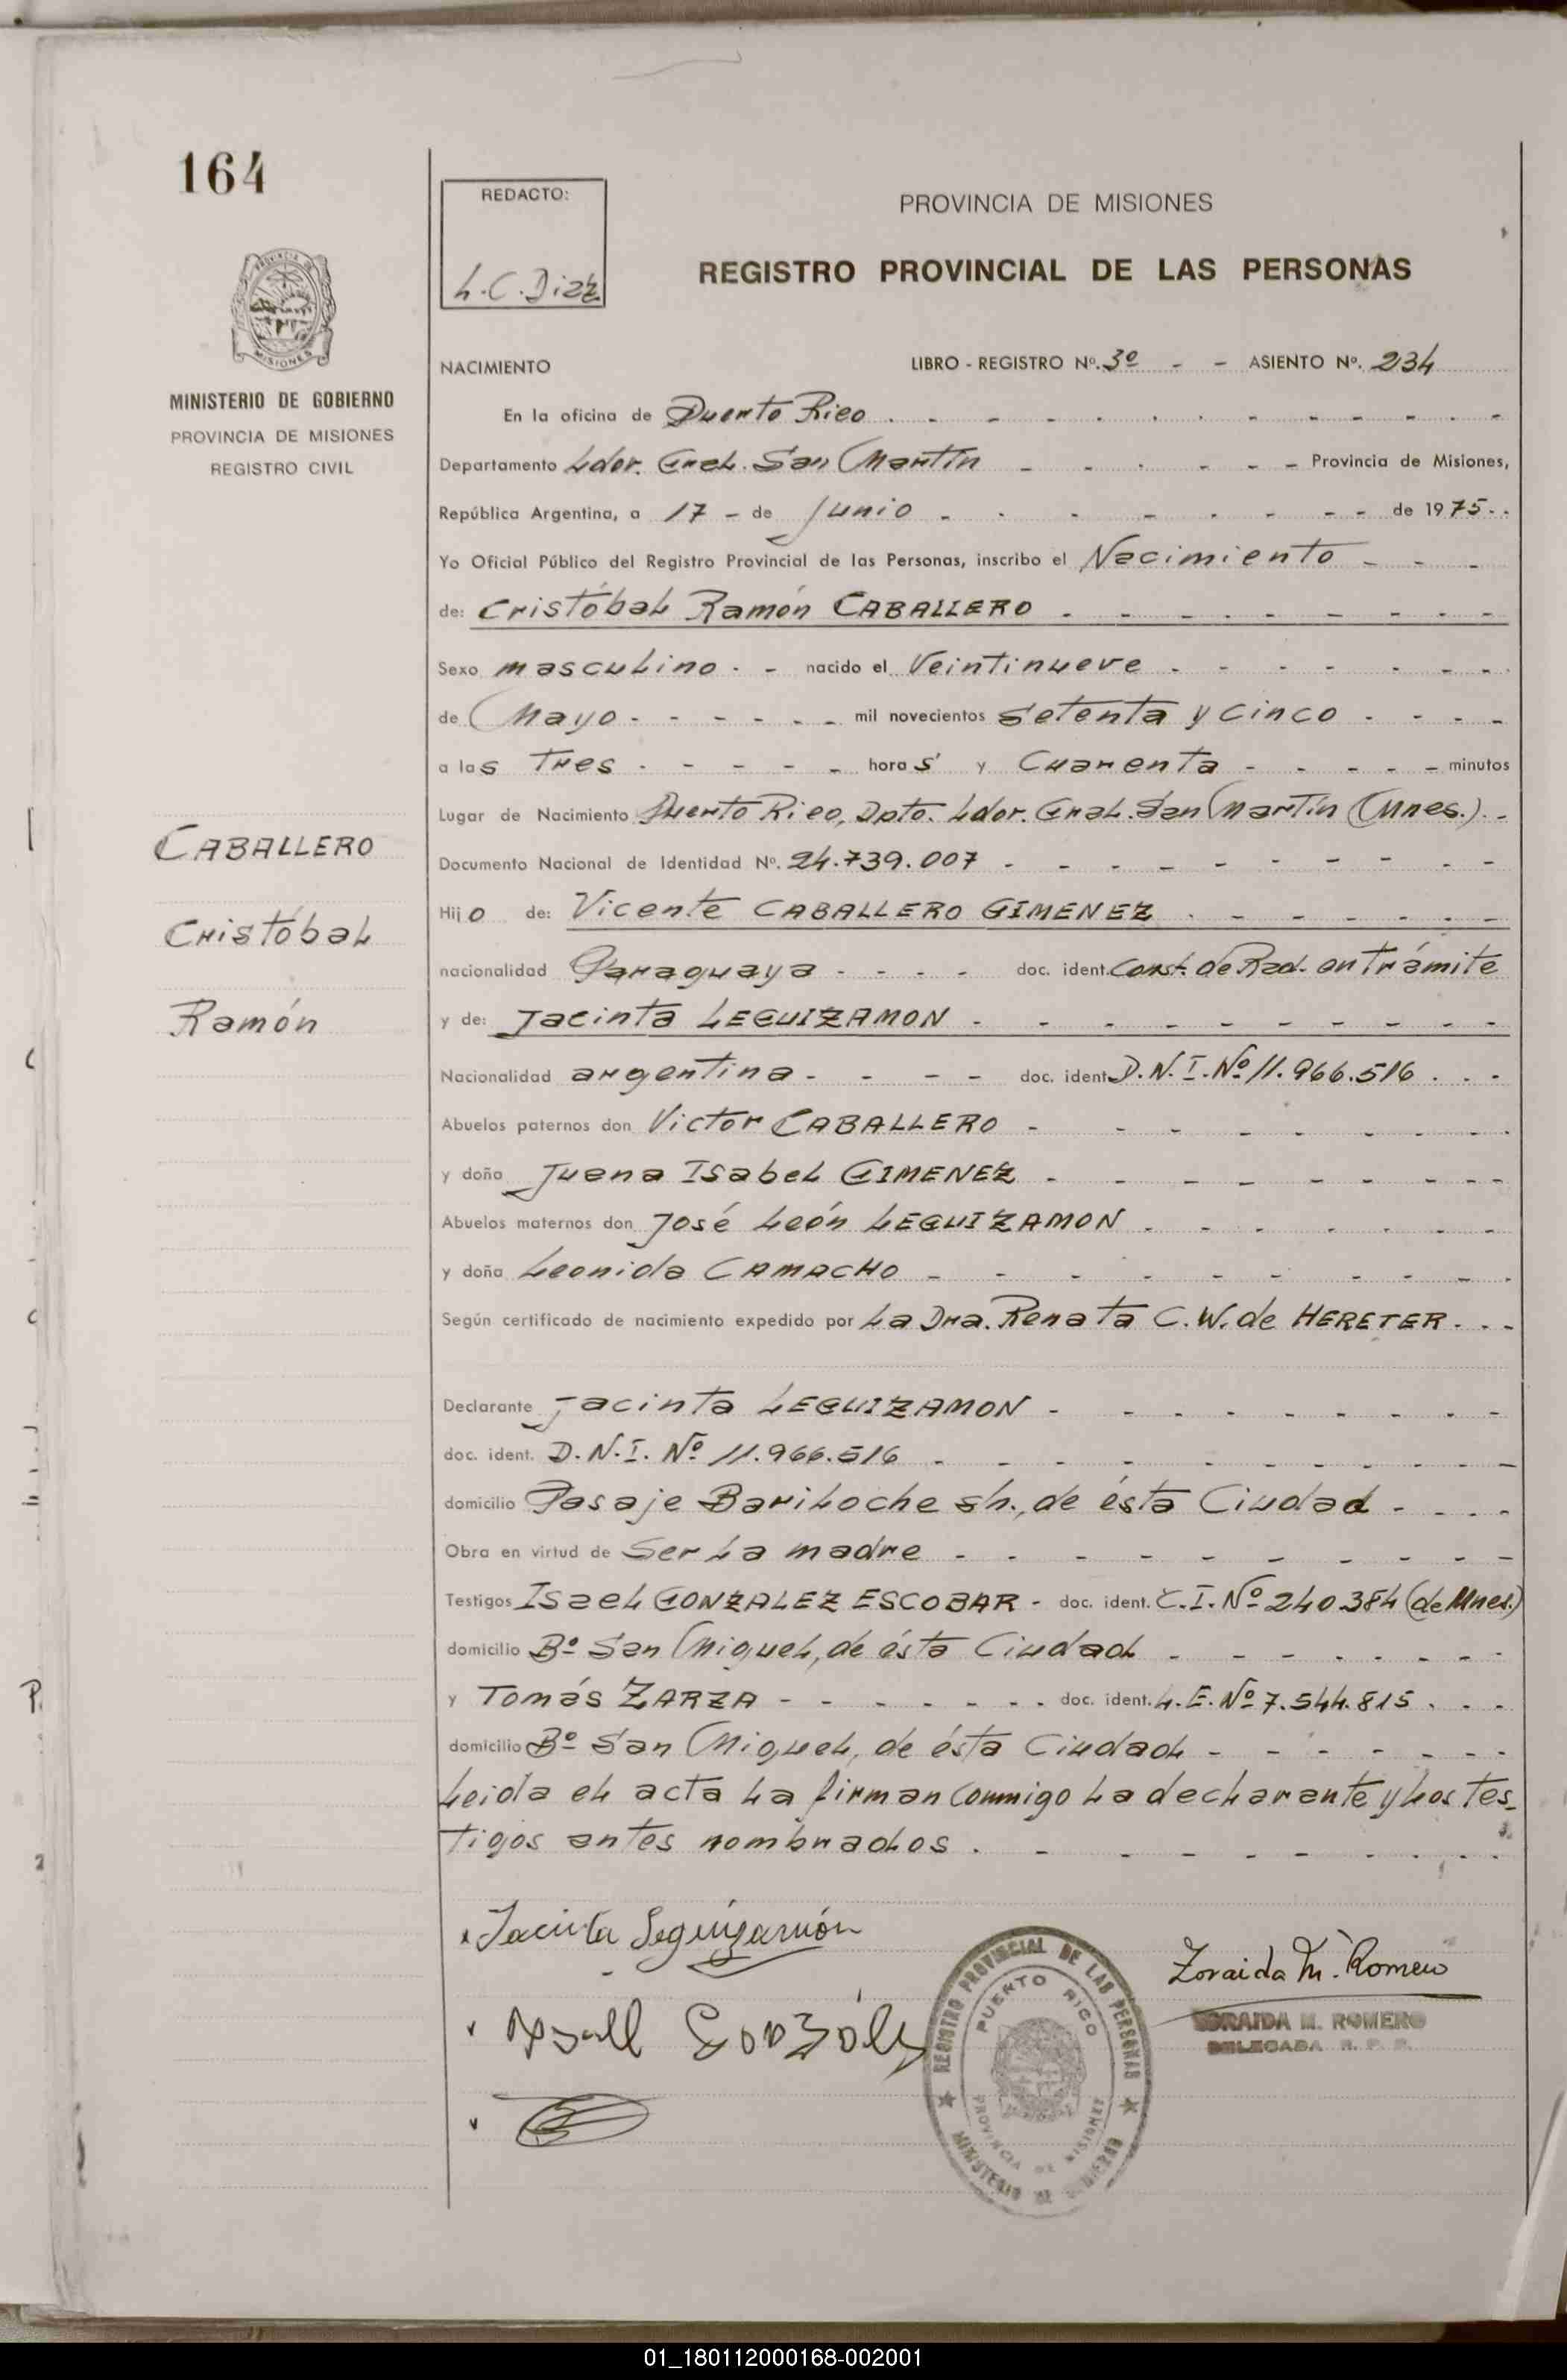 164
REDACTO:
L.C.Diaz
PROVINCIA DE MISIONES
REGISTRO PROVINCIAL DE LAS PERSONAS
PROVINCIA DE
MISIONES
MINISTERIO DE GOBIERNO
PROVINCIA DE MISIONES
REGISTRO CIVIL
NACIMIENTO LIBRO - REGISTRO Nº. 3º - - ASIENTO Nº. 234
En la oficina de Puerto Rico
Departamento Ldor. Gral. San Martín - - - - - - Provincia de Misiones,
República Argentina, a 17 - de Junio - - - - - - - de 1975 - -
Yo Oficial Público del Registro Provincial de las Personas, inscribo el Nacimiento - - -
de: Cristóbal Ramón CABALLERO - - - - - - - -
Sexo masculino - - nacido el Veintinueve - - - - - - -
de Mayo - - - - - - mil novecientos setenta y cinco - - - -
a las Tres - - - - - horas y Cuarenta - - - - - minutos
Lugar de Nacimiento Puerto Rico, Dpto. Ldor. Gral. San Martín (Mnes.). -
Documento Nacional de Identidad Nº. 24.739.007 - - - - - - - - -
Hijo de: Vicente CABALLERO GIMENEZ - - - - - - -
nacionalidad Paraguaya - - - - doc. ident. Const. de Rad. en Trámite
y de: Jacinta LEGUIZAMON - - - - - - - - - -
Nacionalidad argentina - - - - doc. ident. D.N.I. Nº 11.966.516 - - -
Abuelos paternos don Victor CABALLERO - - - - - - - -
y doña Juana Isabel GIMENEZ - - - - - - - - -
Abuelos maternos don José León LEGUIZAMON - - - - - - -
y doña Leonida CAMACHO - - - - - - - - -
Según certificado de nacimiento expedido por La Dra. Renata C. W. de HERETER - - -
Declarante Jacinta LEGUIZAMON - - - - - - - - -
doc. ident. D.N.I. Nº 11.966.516 - - - - - - - - - -
domicilio Pasaje Bariloche sn., de ésta Ciudad - - - -
Obra en virtud de Ser La madre - - - - - - - - - -
Testigos Isael GONZALEZ ESCOBAR - doc. ident. C.I. Nº 240.384 (de Mnes.)
domicilio Bº San Miguel, de ésta Ciudad - - - - - - -
y Tomás ZARZA - - - - - - - doc. ident. L.E. Nº 7.544.815 - - -
domicilio Bº San Miguel, de ésta Ciudad - - - - - - -
Leida el acta La firman Conmigo La declarante y Los Tes-
tigos antes nombrados. - - - - - - - -
CABALLERO
Cristóbal
Ramón
Jacinta Leguizamón
Zoraida M. Romero
ZORAIDA M. ROMERO
DELEGADA R. P. P.
REGISTRO PROVINCIAL DE LAS PERSONAS
PUERTO RICO
PROVINCIA DE MISIONES
MINISTERIO DE GOBIERNO
01_180112000168-002001